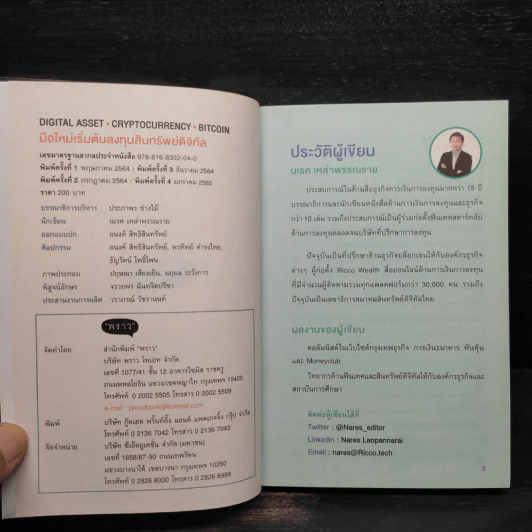 DIGITAL ASSET • CRYPTOCURRENCY • BITCOIN
มือใหม่เริ่มต้นลงทุนสินทรัพย์ดิจิทัล
เลขมาตรฐานสากลประจำหนังสือ 978-616-8302-04-0
พิมพ์ครั้งที่ 1 พฤษภาคม 2564 | พิมพ์ครั้งที่ 3 ธันวาคม 2564
พิมพ์ครั้งที่ 2 กรกฎาคม 2564 | พิมพ์ครั้งที่ 4 มกราคม 2565
ราคา 200 บาท
บรรณาธิการบริหาร ประภาพร ช่างไม้
นักเขียน นเรศ เหล่าพรรณราย
ออกแบบปก อนงค์ สิทธิสินทรัพย์
ศิลปกรรม อนงค์ สิทธิสินทรัพย์, พรทิพย์ ดำรงไทย,
ธัญรัตน์ โพธิ์โพน
ภาพประกอบ ปฤษณา เสียงเย็น, นฤมล ระวังการ
พิสูจน์อักษร จรวยพร ฉันทจิตปรีชา
ประสานงานการผลิต วราภรณ์ วัชรานนท์
"พราว"
จัดทำโดย สำนักพิมพ์ "พราว"
บริษัท พราว โพเอท จำกัด
เลขที่ 1077/41 ชั้น 12 อาคารไซมิส ราชครู
ถนนพหลโยธิน แขวงเขตพญาไท กรุงเทพฯ 10400
โทรศัพท์ 0 2002 5505 โทรสาร 0 2002 5509
e-mail : proudbook@hotmail.com
พิมพ์ บริษัท กู๊ดเฮด พริ้นท์ติ้ง แอนด์ แพคเกจจิ้ง กรุ๊ป จำกัด
โทรศัพท์ 0 2136 7042 โทรสาร 0 2136 7043
จัดจำหน่าย บริษัท ซีเอ็ดยูเคชั่น จำกัด (มหาชน)
เลขที่ 1858/87-90 ถนนเทพรัตน
แขวงบางนาใต้ เขตบางนา กรุงเทพฯ 10260
โทรศัพท์ 0 2826 8000 โทรสาร 0 2826 8999
ประวัติผู้เขียน
นเรศ เหล่าพรรณราย
ประสบการณ์ในด้านสื่อธุรกิจการเงินการลงทุนมากว่า 15 ปี
บรรณาธิการและนักเขียนหนังสือด้านการเงินการลงทุนและธุรกิจ
กว่า 10 เล่ม รวมถึงประสบการณ์เป็นผู้ร่วมก่อตั้งฟินเทคสตาร์ทอัป
ด้านการลงทุนตลอดจนบริษัทที่ปรึกษาการลงทุน
ปัจจุบันเป็นที่ปรึกษาด้านธุรกิจบล็อกเชนให้กับองค์กรธุรกิจ
ต่างๆ ผู้ก่อตั้ง Ricco Wealth สื่อออนไลน์ด้านการเงินการลงทุน
ที่มีจำนวนผู้ติดตามรวมทุกแพลตฟอร์มกว่า 30,000 คน รวมถึง
ปัจจุบันเป็นเลขาธิการสมาคมสินทรัพย์ดิจิทัลไทย
ผลงานของผู้เขียน
คอลัมนิสต์ในเว็บไซต์กรุงเทพธุรกิจ การเงินธนาคาร ทันหุ้น
และ Moneyclub
วิทยากรด้านฟินเทคและสินทรัพย์ดิจิทัลให้กับองค์กรธุรกิจและ
สถาบันการศึกษา
ติดต่อผู้เขียนได้ที่
Twitter : @Nares_editor
Linkedin : Nares Laopannarai
Email : nares@Ricco.tech
3